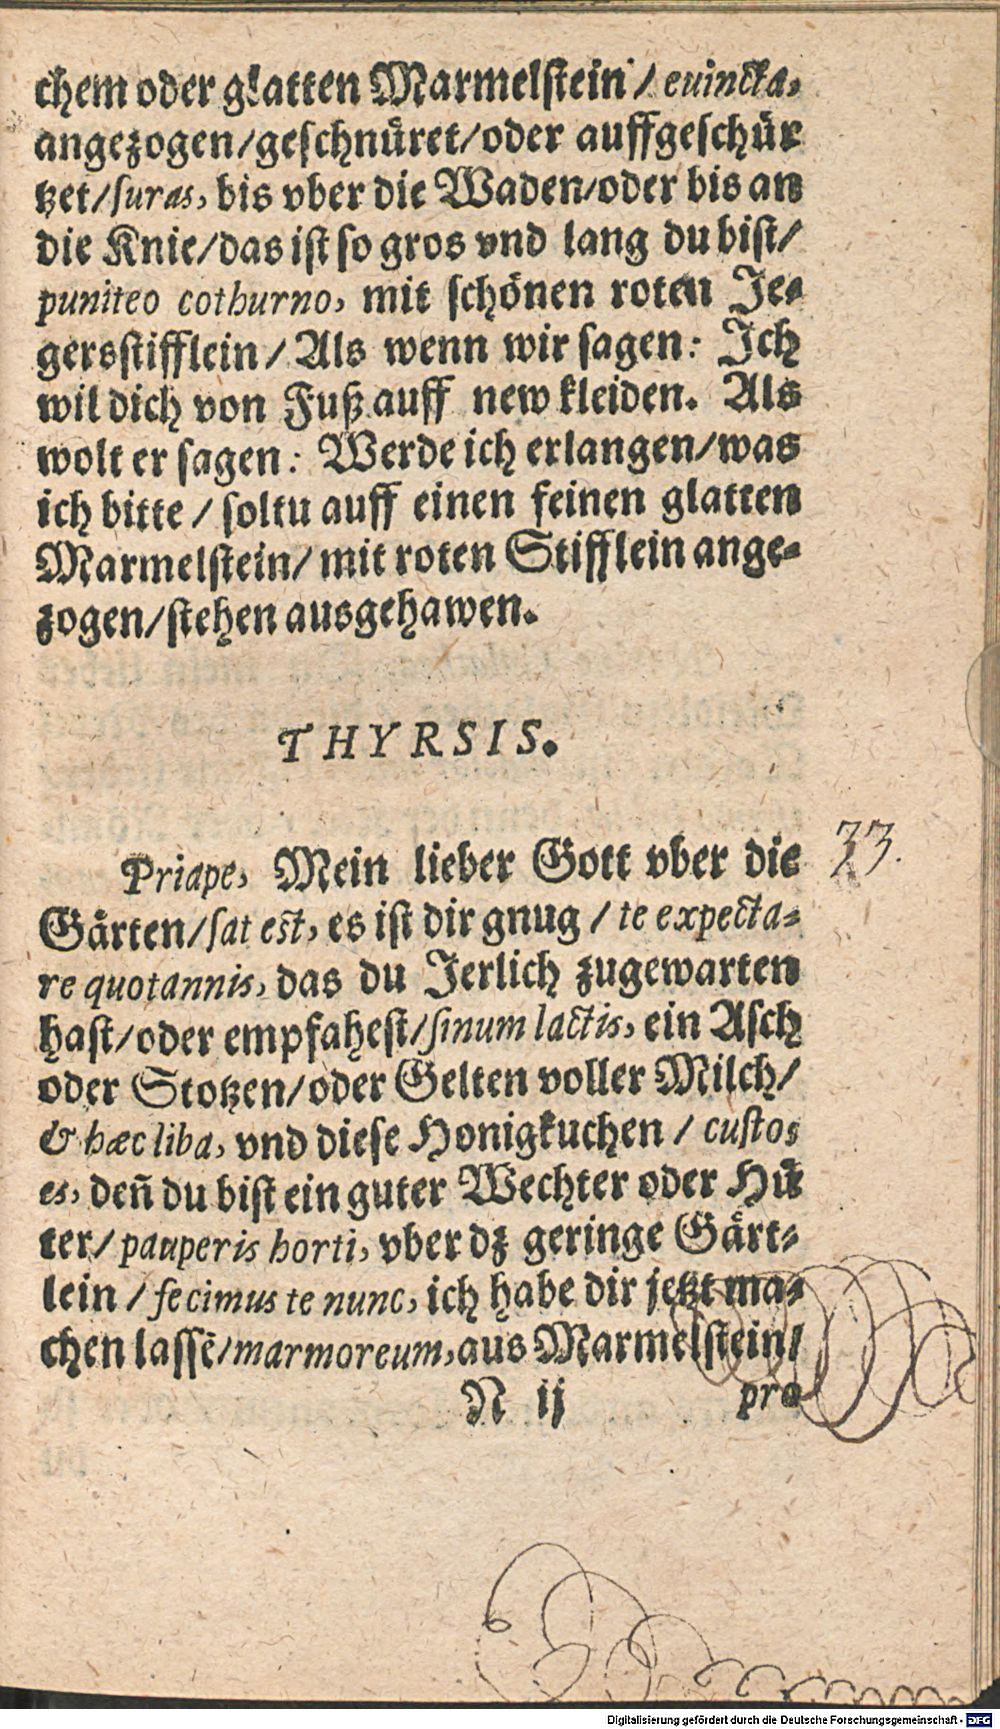 chem oder glatten Marmelſtein / euincta,
angezogen/geſchnuͤret/oder auffgeſchuͤr
tzet/ſuras, bis vber die Waden/oder bis an
die Knie/das iſt ſo gros vnd lang du biſt/
puniteo cothurno, mit ſchoͤnen roten Je-
gersſtifflein / Als wenn wir ſagen: Ich
wil dich von Fuß auff new kleiden. Als
wolt er ſagen: Werde ich erlangen/was
ich bitte / ſoltu auff einen feinen glatten
Marmelſtein/ mit roten Stifflein ange-
zogen/ſtehen ausgehawen.
THYRSIS.
Priape, Mein lieber Gott vber die
33.
Gaͤrten/ſat eſt, es iſt dir gnug / te expecta-
re quotannis, das du Jerlich zugewarten
haſt/oder empfaheſt/ſinum lactis, ein Aſch
oder Stotzen/oder Gelten voller Milch/
& hæc liba, vnd dieſe Honigkuchen / cuſtos
es, deñ du biſt ein guter Wechter oder Huͤ
ter/ pauperis horti, vber dz geringe Gaͤrt-
lein / fecimus te nunc, ich habe dir jetzt ma-
chen laſſē/marmoreum, aus Marmelſtein/
N ij
pro
Digitalisierung gefördert durch die Deutsche Forschungsgemeinschaft - DFG